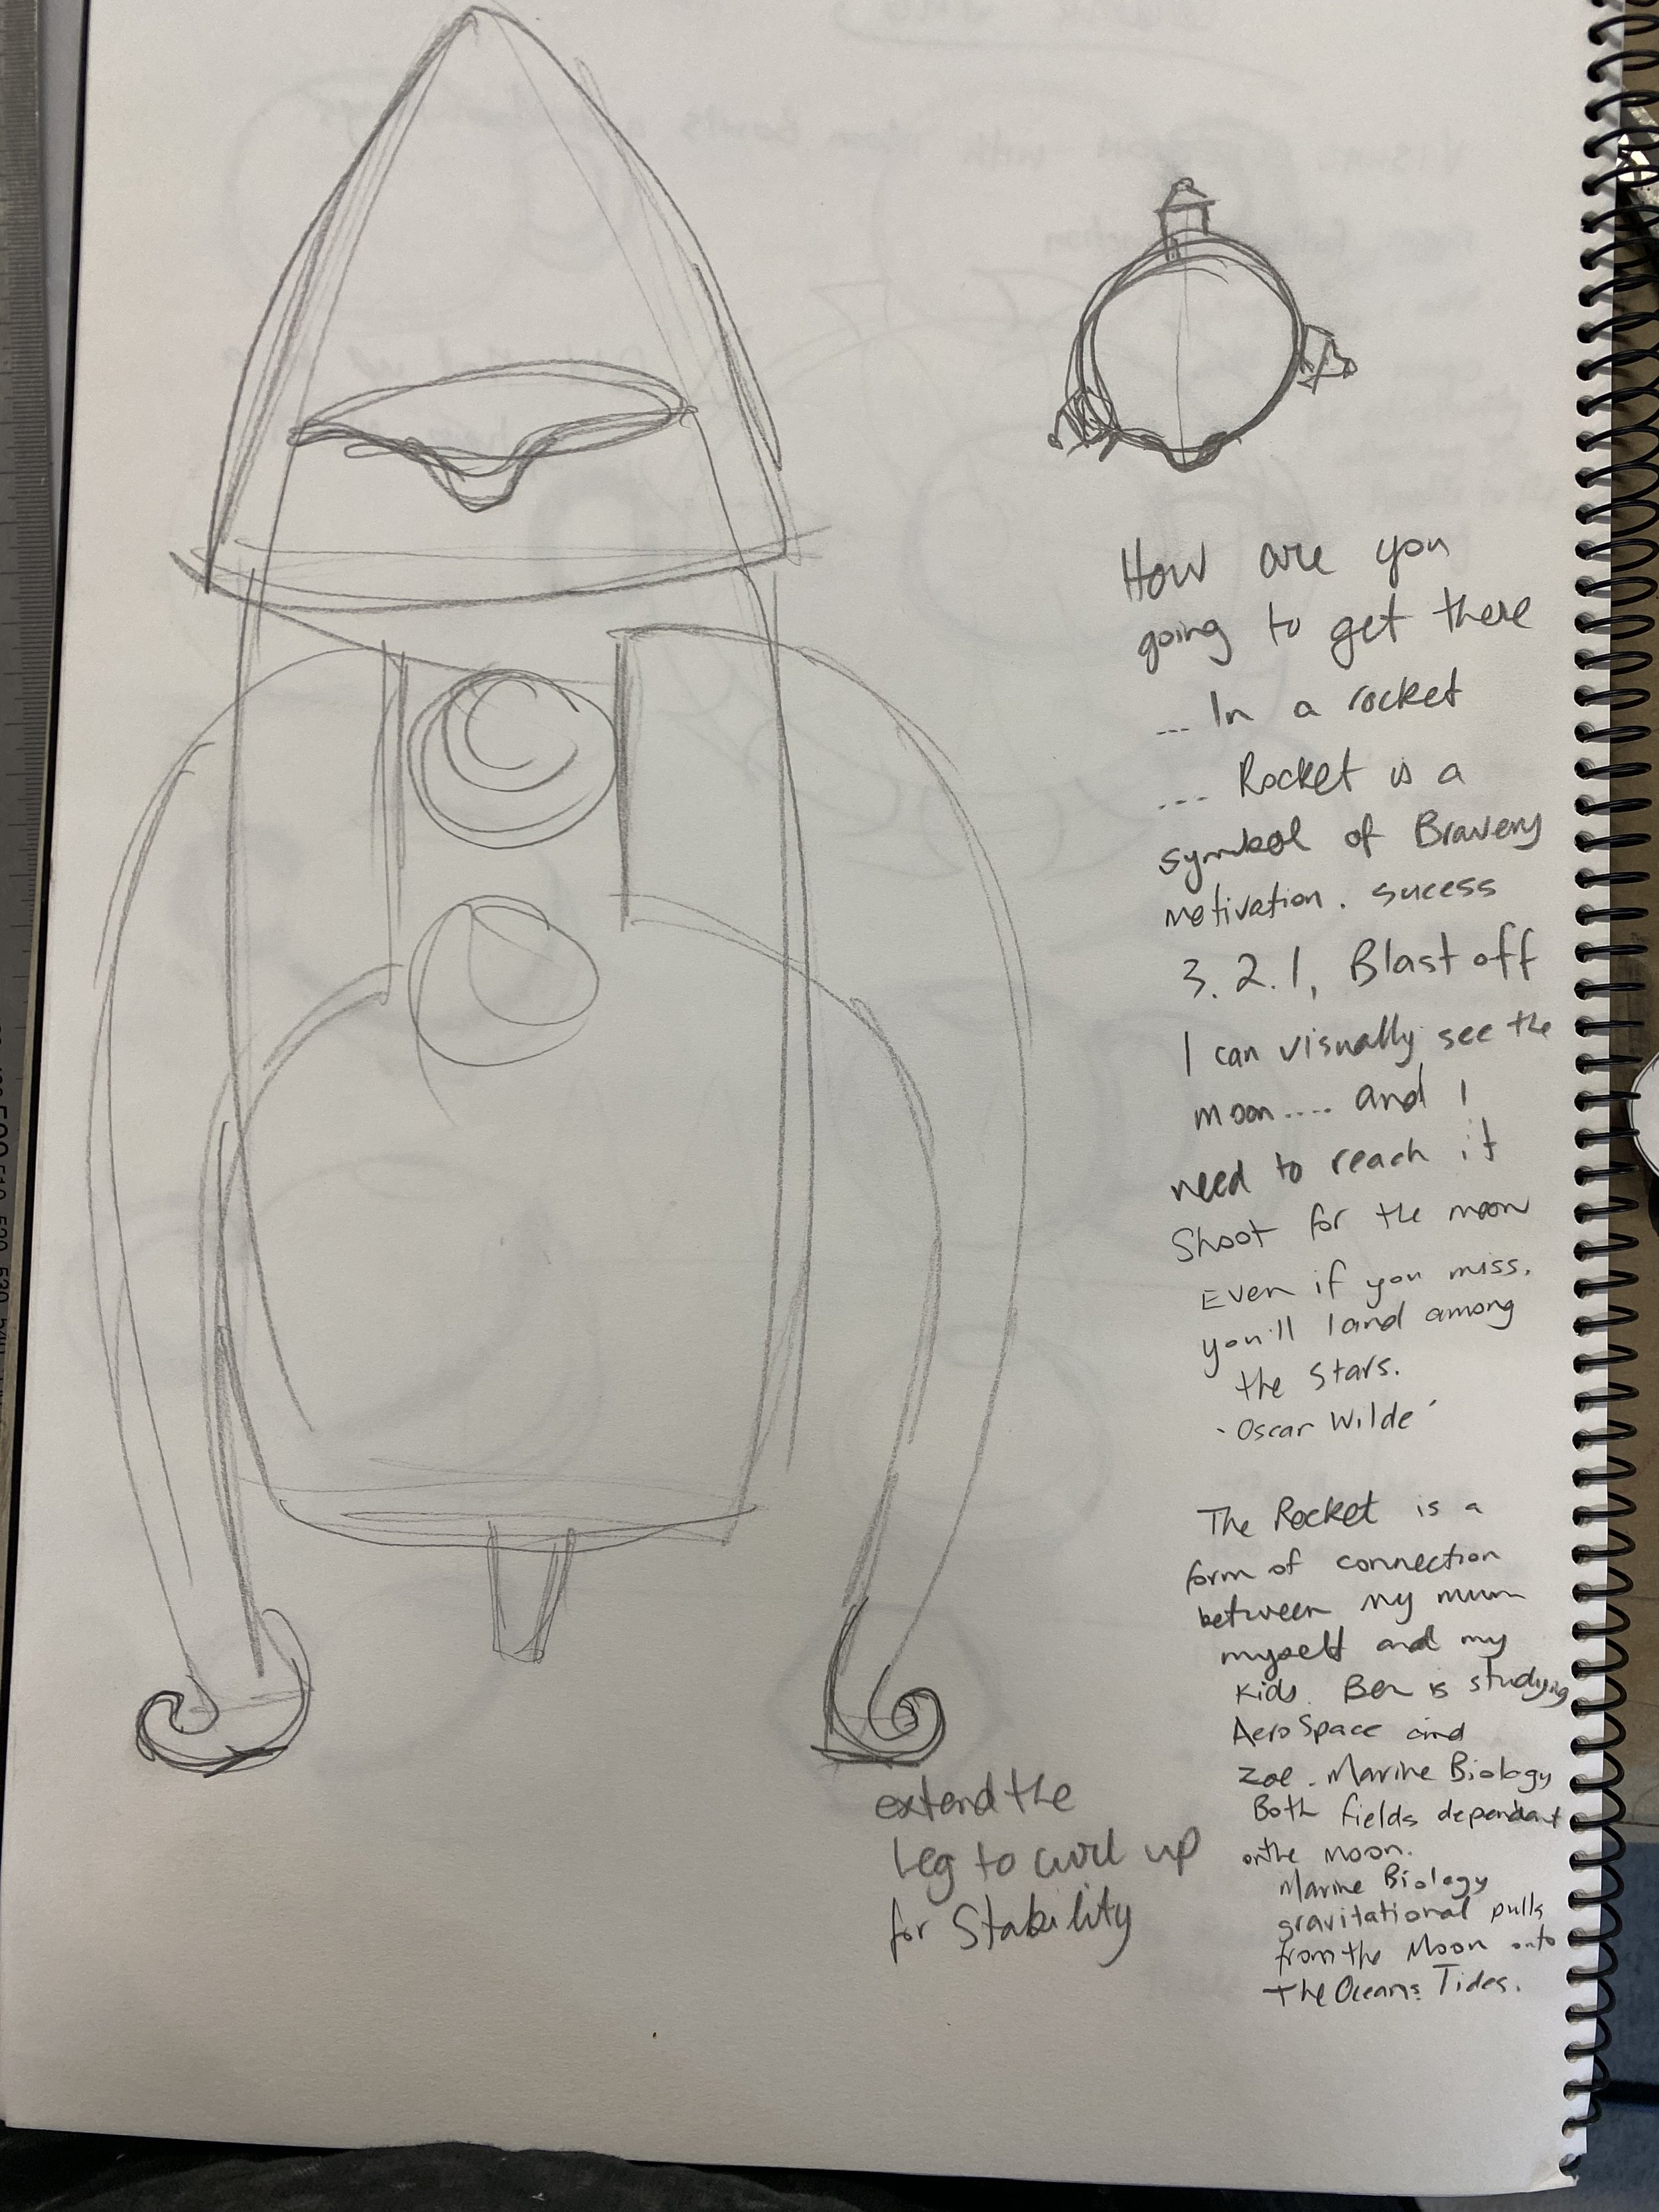 How are you
going to get there
... In a rocket
... Rocket is a
symbol of Bravery
motivation. sucess
3. 2. 1, Blast off
I can visually see the
moon.... and I
need to reach it
Shoot for the moon
Even if you miss.
you'll land among
the Stars.
'Oscar Wilde'
The Rocket is a
form of connection
between my mum
myself and my
kids. Ben is studying
AeroSpace and
Zoe. Marine Biology
Both fields dependant
on the moon.
Marine Biology
gravitational pulls
from the Moon onto
The Oceans Tides.
extend the
leg to curl up
for Stability